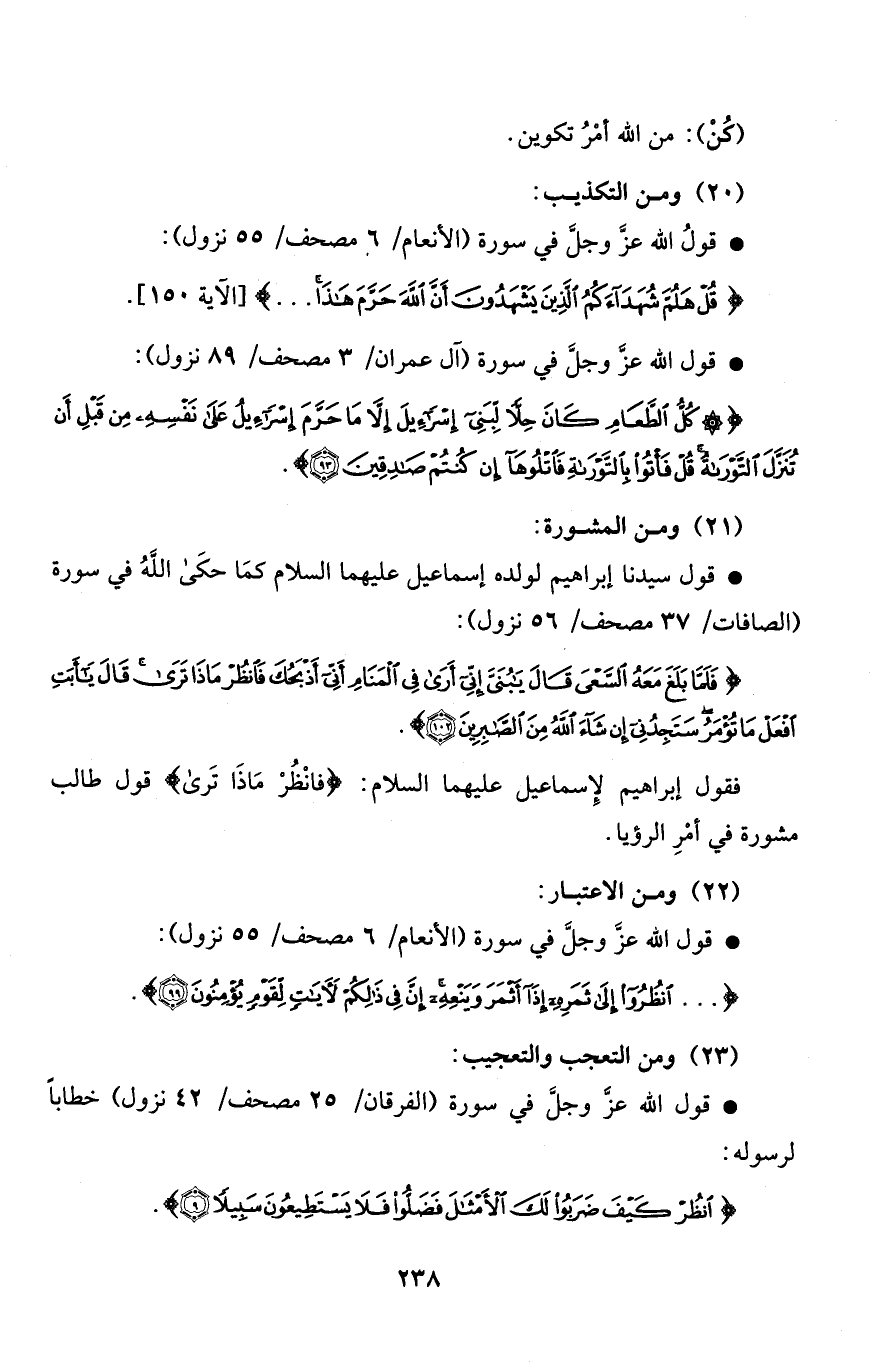 (كُنْ): من الله أمْرُ تكوين.
(٢٠) ومـن التكذيـب:
● قولُ الله عزَّ وجلَّ في سورة (الأنعام/ ٦ مصحف/ ٥٥ نزول):
﴿ قُلْ هَلُمَّ شُهَدَآءَكُمُ ٱلَّذِينَ يَشْهَدُونَ أَنَّ ٱللَّهَ حَرَّمَ هَـٰذَاۖ . . . ﴾ [الآية ١٥٠].
● قول الله عزَّ وجلَّ في سورة (آل عمران/ ٣ مصحف/ ٨٩ نزول):
﴿ ۞ كُلُّ ٱلطَّعَامِ كَانَ حِلًّا لِّبَنِىٓ إِسْرَٰٓءِيلَ إِلَّا مَا حَرَّمَ إِسْرَٰٓءِيلُ عَلَىٰ نَفْسِهِۦ مِن قَبْلِ أَن
تُنَزَّلَ ٱلتَّوْرَىٰةُۗ قُلْ فَأْتُوا۟ بِٱلتَّوْرَىٰةِ فَٱتْلُوهَآ إِن كُنتُمْ صَـٰدِقِينَ ٩٣ ﴾.
(٢١) ومـن المشـورة:
● قول سيدنا إبراهيم لولده إسماعيل عليهما السلام كمَا حكَىٰ اللَّهُ في سورة
(الصافات/ ٣٧ مصحف/ ٥٦ نزول):
﴿ فَلَمَّا بَلَغَ مَعَهُ ٱلسَّعْىَ قَالَ يَـٰبُنَىَّ إِنِّىٓ أَرَىٰ فِى ٱلْمَنَامِ أَنِّىٓ أَذْبَحُكَ فَٱنظُرْ مَاذَا تَرَىٰۚ قَالَ يَـٰٓأَبَتِ
ٱفْعَلْ مَا تُؤْمَرُۖ سَتَجِدُنِىٓ إِن شَآءَ ٱللَّهُ مِنَ ٱلصَّـٰبِرِينَ ١٠٢ ﴾.
فقول إبراهيم لإسماعيل عليهما السلام: ﴿فانْظُرْ مَاذَا تَرىٰ﴾ قول طالب
مشورة في أمْرِ الرؤيا.
(٢٢) ومـن الاعتبـار:
● قول الله عزَّ وجلَّ في سورة (الأنعام/ ٦ مصحف/ ٥٥ نزول):
﴿ . . . ٱنظُرُوٓا۟ إِلَىٰ ثَمَرِهِۦٓ إِذَآ أَثْمَرَ وَيَنْعِهِۦٓۚ إِنَّ فِى ذَٰلِكُمْ لَـَٔايَـٰتٍ لِّقَوْمٍ يُؤْمِنُونَ ٩٩ ﴾.
(٢٣) ومن التعجب والتعجيب:
● قول الله عزَّ وجلَّ في سورة (الفرقان/ ٢٥ مصحف/ ٤٢ نزول) خطاباً
لرسوله:
﴿ ٱنظُرْ كَيْفَ ضَرَبُوا۟ لَكَ ٱلْأَمْثَـٰلَ فَضَلُّوا۟ فَلَا يَسْتَطِيعُونَ سَبِيلًا ٩ ﴾.
٢٣٨